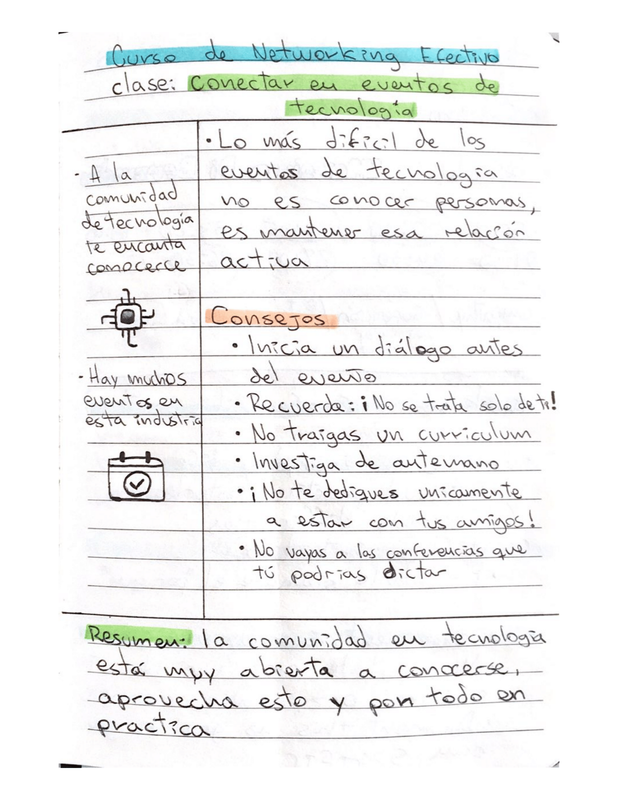 Curso de Networking Efectivo
clase: Conectar en eventos de
tecnología
- A la
comunidad
de tecnología
te encanta
conocerce
- Hay muchos
eventos en
esta industria
• Lo más difícil de los
eventos de tecnología
no es conocer personas,
es mantener esa relación
activa
Consejos
• Inicia un diálogo antes
del evento
• Recuerda: ¡No se trata solo de ti!
• No traigas un curriculum
• Investiga de antemano
• ¡No te dediques unicamente
a estar con tus amigos!
• No vayas a las conferencias que
tú podrias dictar
Resumen: la comunidad en tecnología
está muy abierta a conocerse,
aprovecha esto y pon todo en
practica